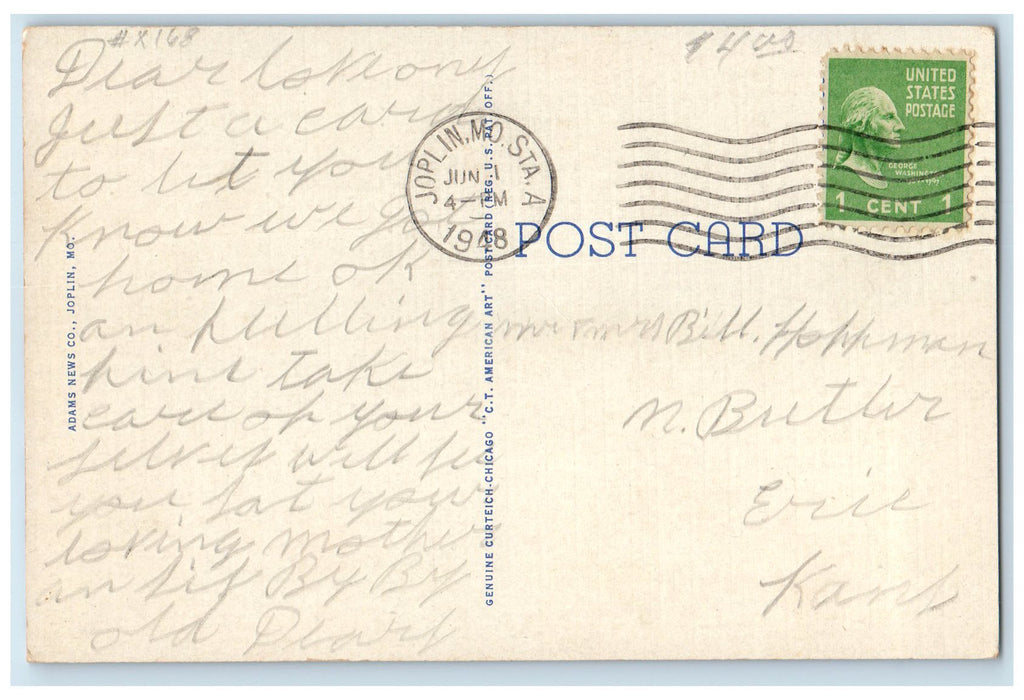 #X168
$4.00
Dear Loveons
Just a card
to let you
know we got
home ok
an felling
fine take
care of your
selves will see
you sat your
loving mother
an sis By By
old Dears
ADAMS NEWS CO., JOPLIN, MO.
GENUINE CURTEICH-CHICAGO "C.T. AMERICAN ART" POST CARD (REG. U.S. PAT. OFF.)
JOPLIN, MO. STA. A
JUN 1
4-PM
1948
UNITED
STATES
POSTAGE
GEORGE
WASHINGTON
1 CENT 1
POST CARD
mr an mrs Bill. Hoppman
N. Butler
Erie
Kans